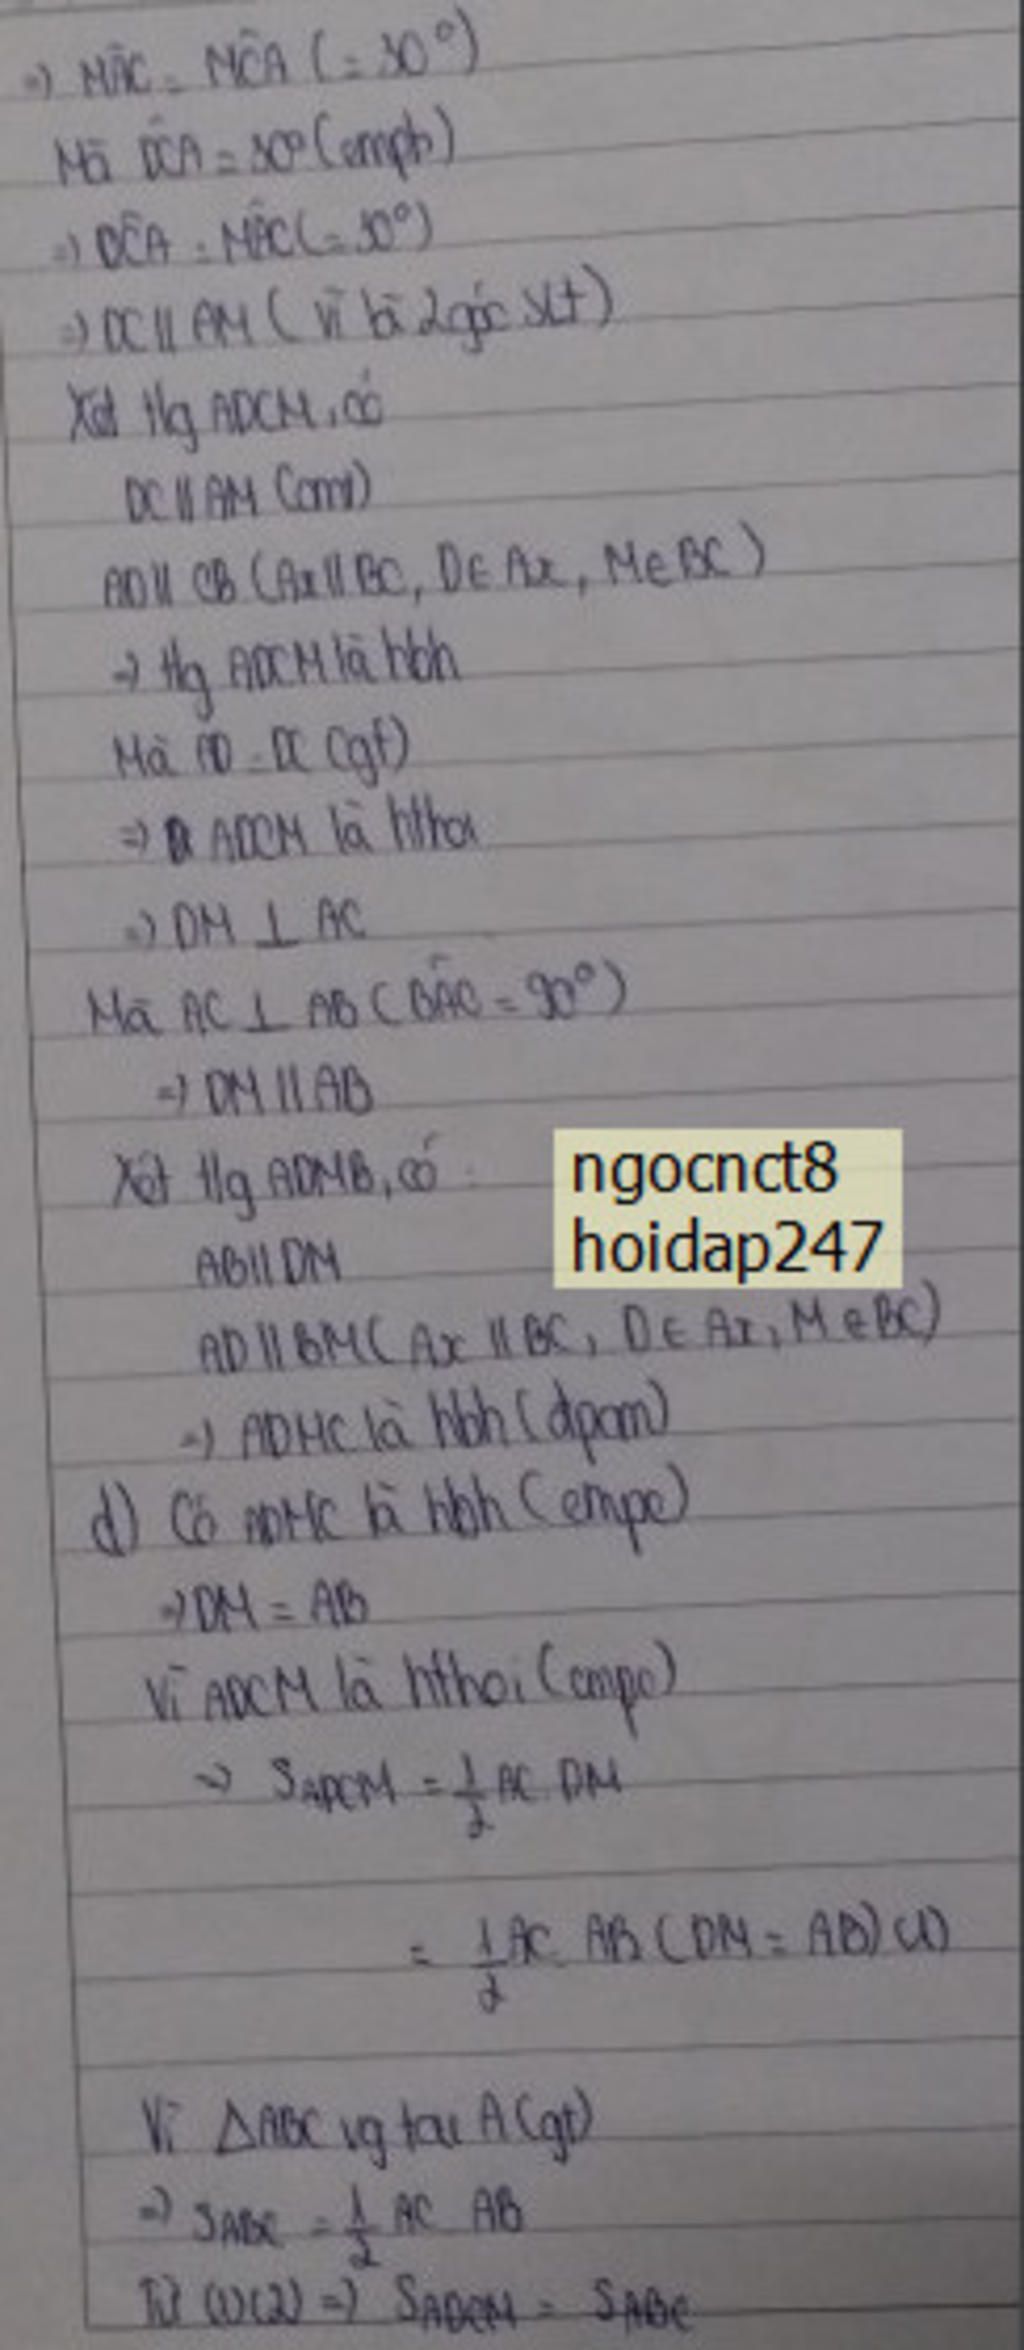 => MÂC = MĈA (= 30°)
Mà DĈA = 30° (cmpb)
=> DĈA = MÂC (= 30°)
=> DC // AM (Vì là 2 góc SLT)
Xét tg ADCM, có
DC // AM (cmt)
AD // CB (Ax // BC, D ∈ Ax, M ∈ BC)
=> tg ADCM là hbh
Mà AD = DC (gt)
=> ADCM là hthoi
=> DM ⊥ AC
Mà AC ⊥ AB (BÂC = 90°)
=> DM // AB
Xét tg ADMB, có :
AB // DM
AD // BM (Ax // BC, D ∈ Ax, M ∈ BC)
=> ADMC là hbh (đpcm)
d) Có ADMC là hbh (cmpc)
=> DM = AB
Vì ADCM là hthoi (cmpc)
=> S_ADCM = 1/2 AC DM
= 1/2 AC AB (DM = AB) (1)
Vì △ABC vg tại A (gt)
=> S_ABC = 1/2 AC AB
Từ (1)(2) => S_ADCM = S_ABC
ngocnct8
hoidap247